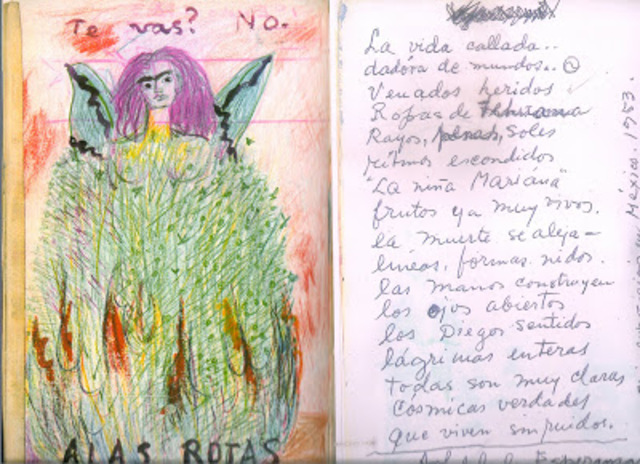 Te vas? No.
ALAS ROTAS
La vida callada..
dadóra de mundos..
Venados heridos
Ropas de Tehuana
Rayos, penas, Soles
ritmos escondidos
"La niña Mariána"
frutos ya muy vivos.
la muerte se aleja–
lineas, formas. nidos.
las manos construyen
los ojos abiertos
los Diegos sentidos
lágrimas enteras
todas son muy claras
Cósmicas verdades
que viven sin ruidos.
Esperanza
México. 1953